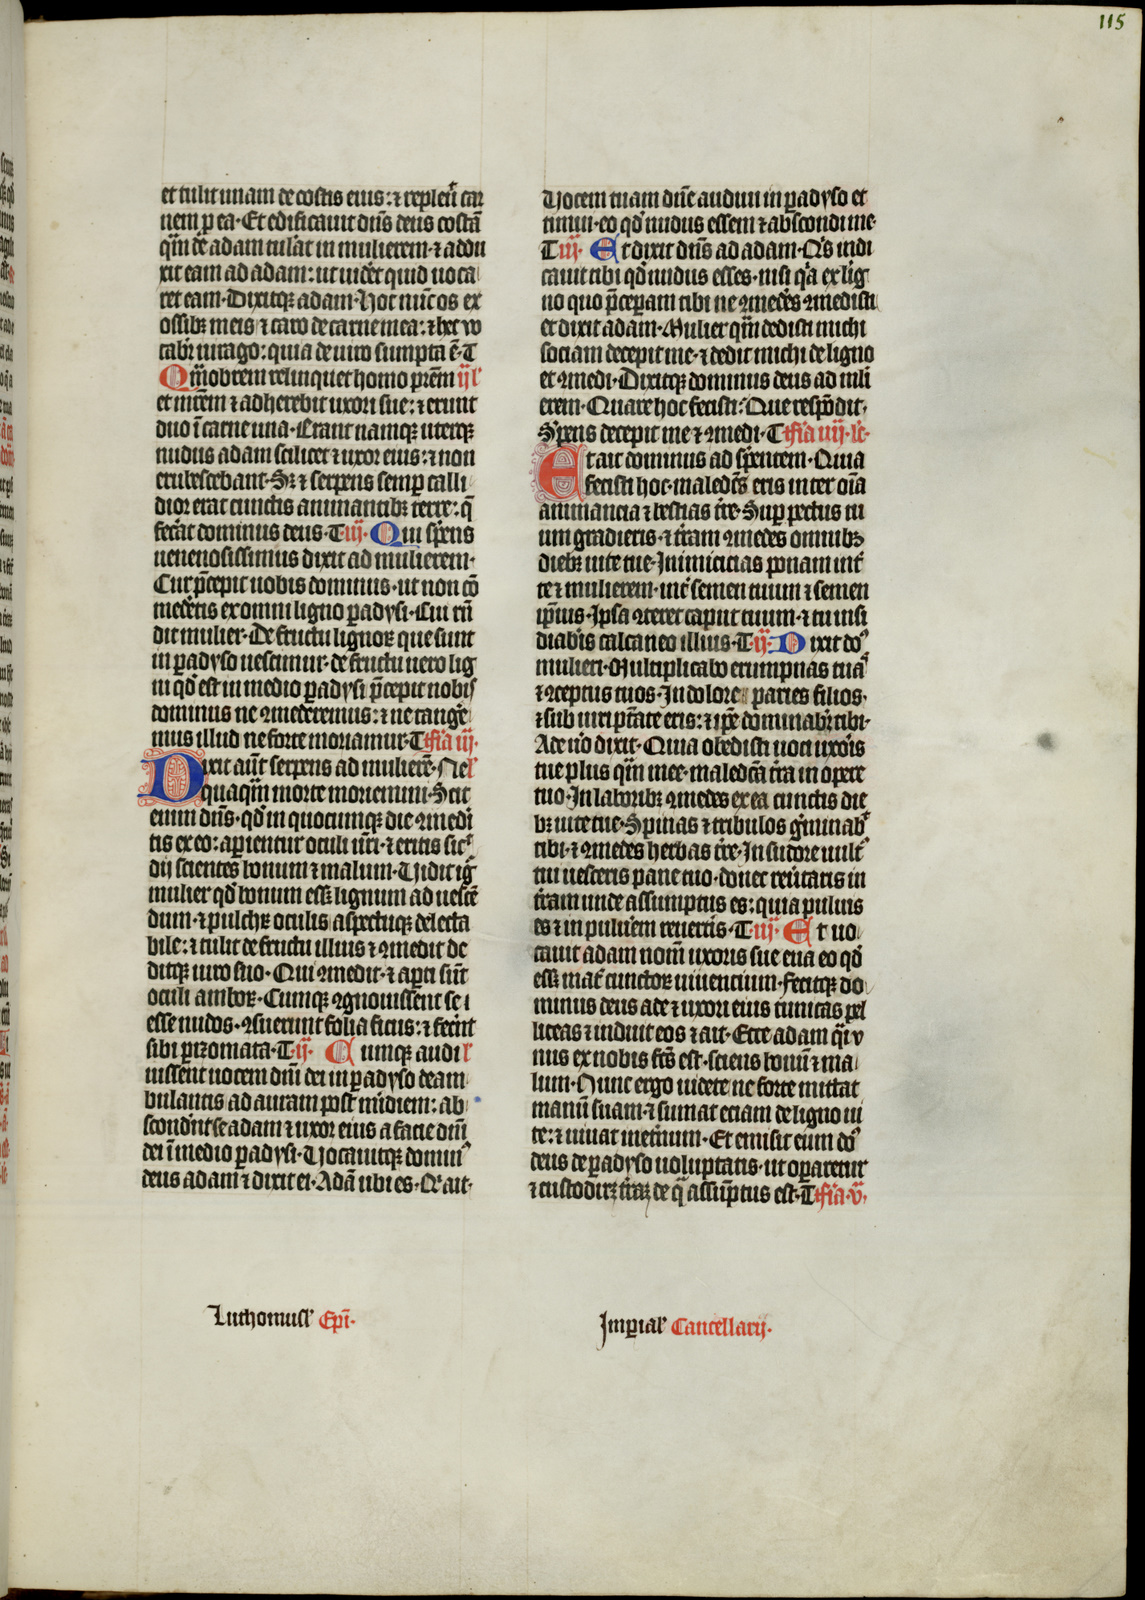 115
et tulit unam de costis eius: ⁊ repleūt car
nem p̱ ea· Et edificauit dn̄s deus costā
qm̄ de adam tul̓at in mulierem· ⁊ addu
xit eam ad adam: ut uid̓et quid uoca
ret eam· Dixitqꝫ adam· Hoc nūc os ex
ossibꝫ meis ⁊ caro de carne mea: ⁊ hec vo
cabr̄ uirago: quia de uiro sumpta ē· T
Qm̄obrem relinquet homo pr̄em ijl̓
et mr̄em ⁊ adherebit uxori sue: ⁊ erunt
duo ī carne una· Erant namqꝫ uterqꝫ
nudus adam scilicet ⁊ uxor eius: ⁊ non
erubescebant· Sꝫ ⁊ serpens semp̱ calli
dior erat cunctis animantibꝫ terre: q̄
fec̓at dominus deus· T· iij· Qui sp̓ens
uenenosissimus dixit ad mulierem·
Cur p̄cepit uobis dominus· ut non cō
med̓etis ex omni ligno p̱adysi· Cui rn̄
dit mulier· De fructu lignoꝝ que sunt
in p̱adyso uescimur· de fructu uero lig
ni qd̓ est in medio p̱adysi p̄cepit nobis
dominus ne ꝯmederemus: ⁊ ne tange
mus illud ne forte moriamur· T fīa iij·
Dixit aūt serpens ad mulierē· Ne l̓
quaqm̄ morte moriemini· Scit
enim dn̄s· qd̓ in quocumqꝫ die ꝯmedi
tis ex eo: ap̱ientur oculi ur̄i· ⁊ eritis sic̓
dij scientes bonum ⁊ malum· Uidit ig̓
mulier qd̓ bonum essꝫ lignum ad uescē
dum· ⁊ pulchꝝ oculis aspectuqꝫ delecta
bile: ⁊ tulit de fructu illius ⁊ ꝯmedit de
ditqꝫ uiro suo· Qui ꝯmedit· ⁊ ap̱ti sūt
oculi amboꝝ· Cumqꝫ ꝯgnouissent se
esse nudos· ꝯsuerunt folia ficus: ⁊ fec̓ūt
sibi p̱izomata· T· ij· Cumqꝫ audi l̓
uissent uocem dn̄i dei in p̱adyso deam
bulantis ad auram post m̓idiem: ab
scond̓ūt se adam ⁊ uxor eius a facie dn̄i
dei ī medio p̱adysi· Uocauitqꝫ domin̓
deus adam ⁊ dixit ei· Adā ubi es· Q̓ ait·
Uocem tuam dn̄e audiui in p̱adyso et
timui· eo qd̓ nudus essem ⁊ abscondi me·
T iij· Et dixit dn̄s ad adam· Q̓s indi
cauit tibi qd̓ nudus esses· nisi q̓a ex lig
no quo p̄cep̱am tibi ne ꝯmed̓es ꝯmedisti
et dixit adam· Mulier qm̄ dedisti michi
sociam decepit me· ⁊ dedit michi de ligno
et ꝯmedi· Dixitqꝫ dominus deus ad muli
erem· Quare hoc fecisti: Que respōdit·
S̓pens decepit me ⁊ ꝯmedi· T fīa iiij· lc̄·
Et ait dominus ad sp̓entem· Quia
fecisti hoc· maledc̄s eris inter oīa
animancia ⁊ bestias t̓re· Sup̱ pectus tu
um gradieris· ⁊ t̓ram ꝯmedes omnibꝫ
diebꝫ uite tue· Inimicicias ponam int̓
te ⁊ mulierem· int̓ semen tuum ⁊ semen
ip̄ius· Ipsa ꝯteret caput tuum· ⁊ tu insi
diab̓is calcaneo illius· T· ij· Dixit do᷒
mulieri· Multiplicabo erumpnas tuas
⁊ ꝯceptus tuos· In dolore paries filios·
⁊ sub uiri p̄tate eris: ⁊ ip̄e dominabr̄ tibi·
Ade u̓o dixit· Quia obedisti uoci uxoris
tue plus qm̄ mee· maledc̄a t̓ra in opere
tuo· In laboribꝫ ꝯmedes ex ea cunctis die
bꝫ uite tue· Spinas ⁊ tribulos g̓minab̓
tibi· ⁊ ꝯmedes herbas t̓re· In sudore uult̓
tui uesceris pane tuo· donec reu̓taris in
t̓ram unde assumptus es: quia puluis
es ⁊ in puluerem reuertis· T· iij· Et uo
cauit adam nom̄ uxoris sue eua eo qd̓
essꝫ mat̓ cunctoꝝ uiuencium· Fecitqꝫ do
minus deus ade ⁊ uxori eius tunicas pel
liceas ⁊ induit eos ⁊ ait· Ecce adam q̓i v
nus ex nobis fc̄s est· sciens bonū ⁊ ma
lum· Nunc ergo uidete ne forte mittat
manū suam· ⁊ sumat eciam de ligno ui
te: ⁊ uiuat inet̓num· Et emisit eum do᷒
deus de p̱adyso uoluptatis· ut op̱aretur
⁊ custodiret t̓ram de q̄ assūptus est· T fīa· v·
Luthomisl̓ Ep̄i·
Imp̱ial̓ Cancellarij·